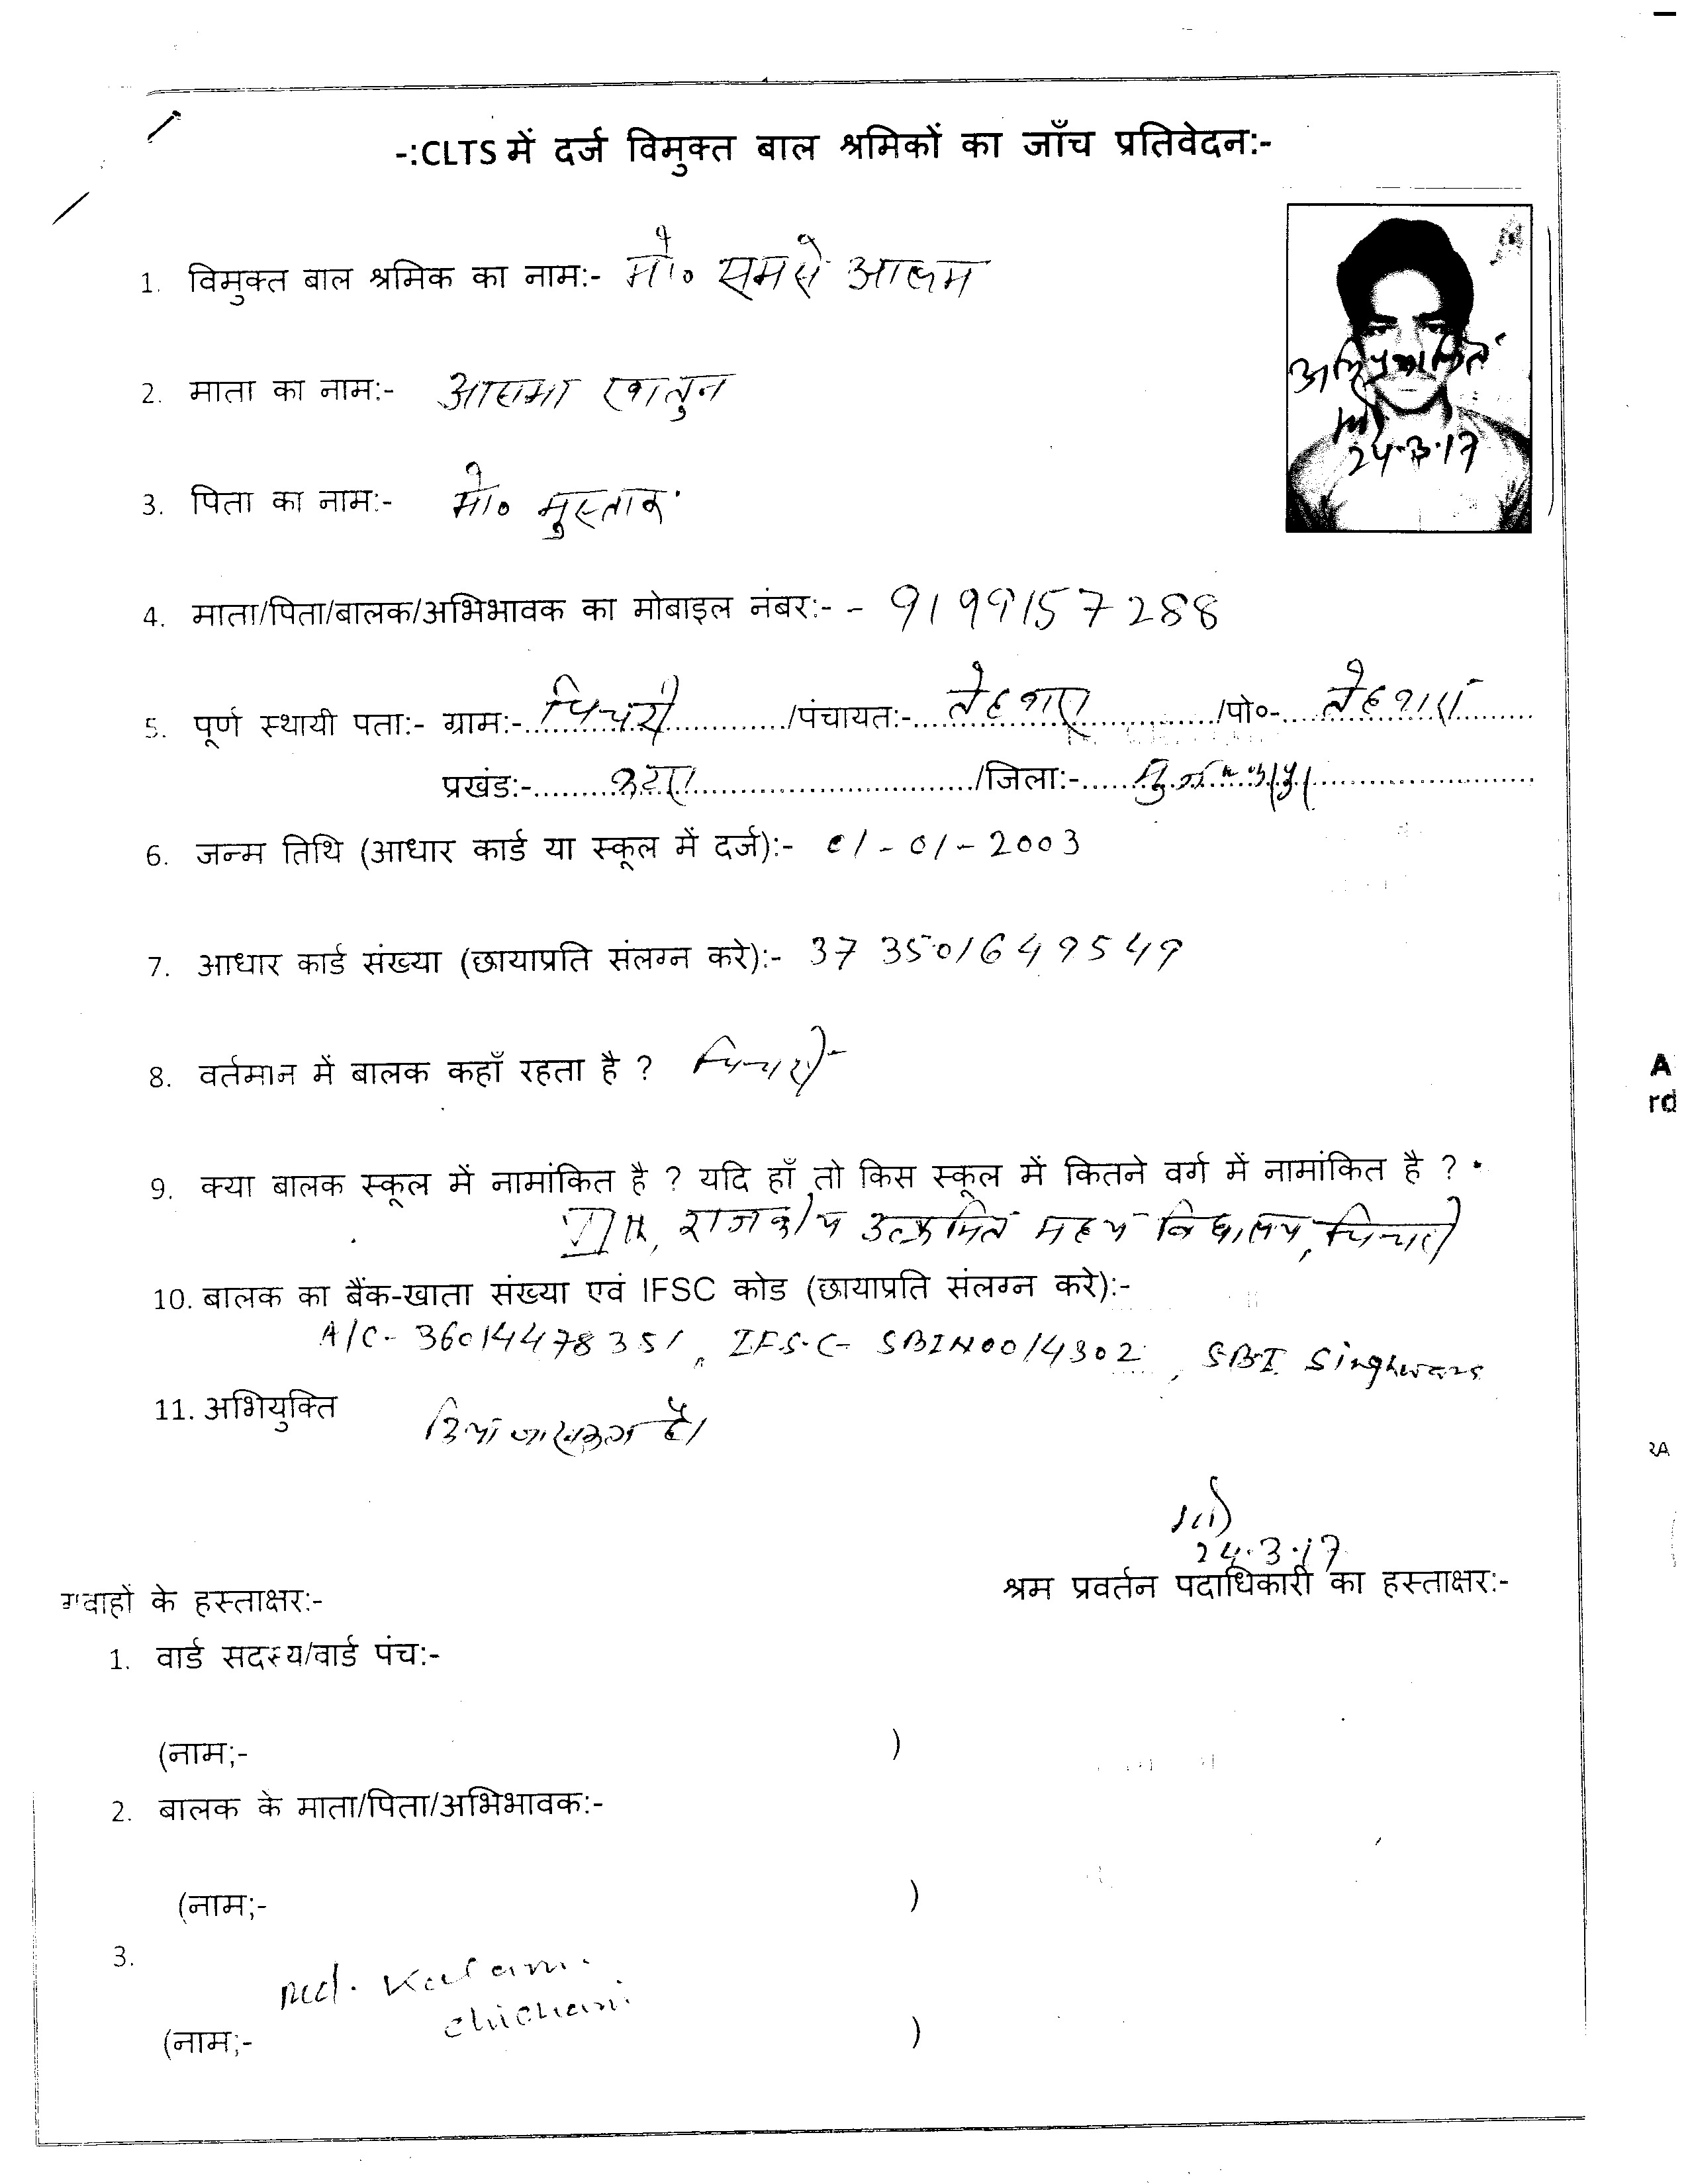 -:CLTS में दर्ज विमुक्त बाल श्रमिकों का जाँच प्रतिवेदन:-
1. विमुक्त बाल श्रमिक का नाम:- मो० समसे आलम
2. माता का नाम:- आसमा खातुन
3. पिता का नाम:- मो० मुस्ताक
24.3.17
4. माता/पिता/बालक/अभिभावक का मोबाइल नंबर:- - 9199157288
5. पूर्ण स्थायी पता:- ग्राम:- चिचरी /पंचायत:- तेहवारा /पो०- तेहवारा
प्रखंड:- कटरा /जिला:- मुजफ्फरपुर
6. जन्म तिथि (आधार कार्ड या स्कूल में दर्ज):- 01-01-2003
7. आधार कार्ड संख्या (छायाप्रति संलग्न करे):- 373501649549
8. वर्तमान में बालक कहाँ रहता है ? चिचरी
9. क्या बालक स्कूल में नामांकित है ? यदि हाँ तो किस स्कूल में कितने वर्ग में नामांकित है ?
राजकीय उत्क्रमित मध्य विद्यालय, चिचरी
10. बालक का बैंक-खाता संख्या एवं IFSC कोड (छायाप्रति संलग्न करे):-
A/C- 36014478351, IFSC- SBIN0014302, SBI Singhwara
11. अभियुक्ति दिया जा सकता है।
24.3.17
श्रम प्रवर्तन पदाधिकारी का हस्ताक्षर:-
गवाहों के हस्ताक्षर:-
1. वार्ड सदस्य/वार्ड पंच:-
(नाम;- )
2. बालक के माता/पिता/अभिभावक:-
(नाम;- )
3.
Md. Kalam
chichari
(नाम;- )
A
rd
RA